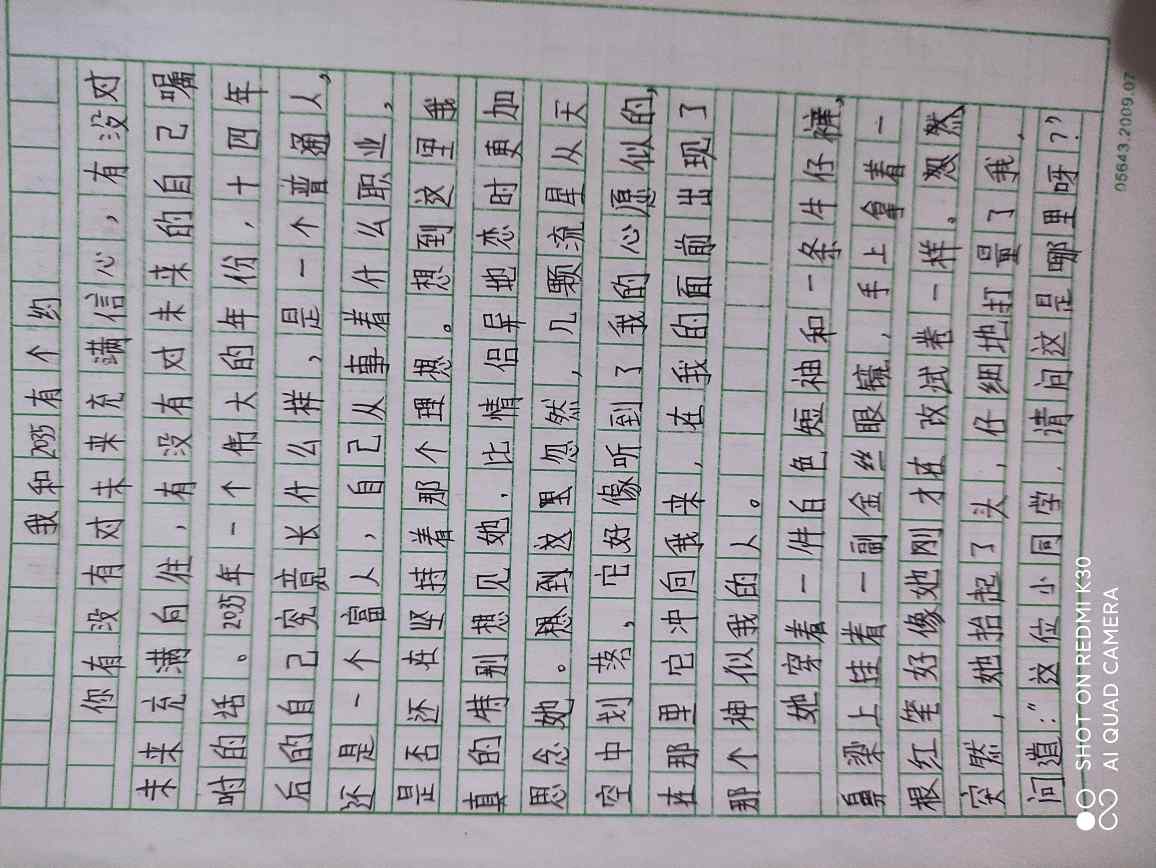 我和2035有个约
你有没有对未来充满信心，有没对
未来充满向往，有没有对未来的自己嘱
咐的话。2035年一个伟大的年份，十四年
后的自己究竟长什么样，是一个普通人，
还是一个富人，自己从事着什么职业，
是否还在坚持着那个理想。想到这里我
真的特别想见她，比情侣异地恋时更加
思念她。想到这里忽然，几颗流星从天
空中划落，它好像听到了我的心愿似的，
在那里它冲向我来，在我的面前出现了
那个神似我的人。
她穿着一件白色短袖和一条牛仔裤，
鼻梁上挂着一副金丝眼镜，手上拿着一
根红笔好像她刚才在改试卷一样。忽然
突然，她抬起了头，仔细地打量了我，
问道：“这位小同学，请问这是哪里呀？”
05643.2009.07
SHOT ON REDMI K30
AI QUAD CAMERA